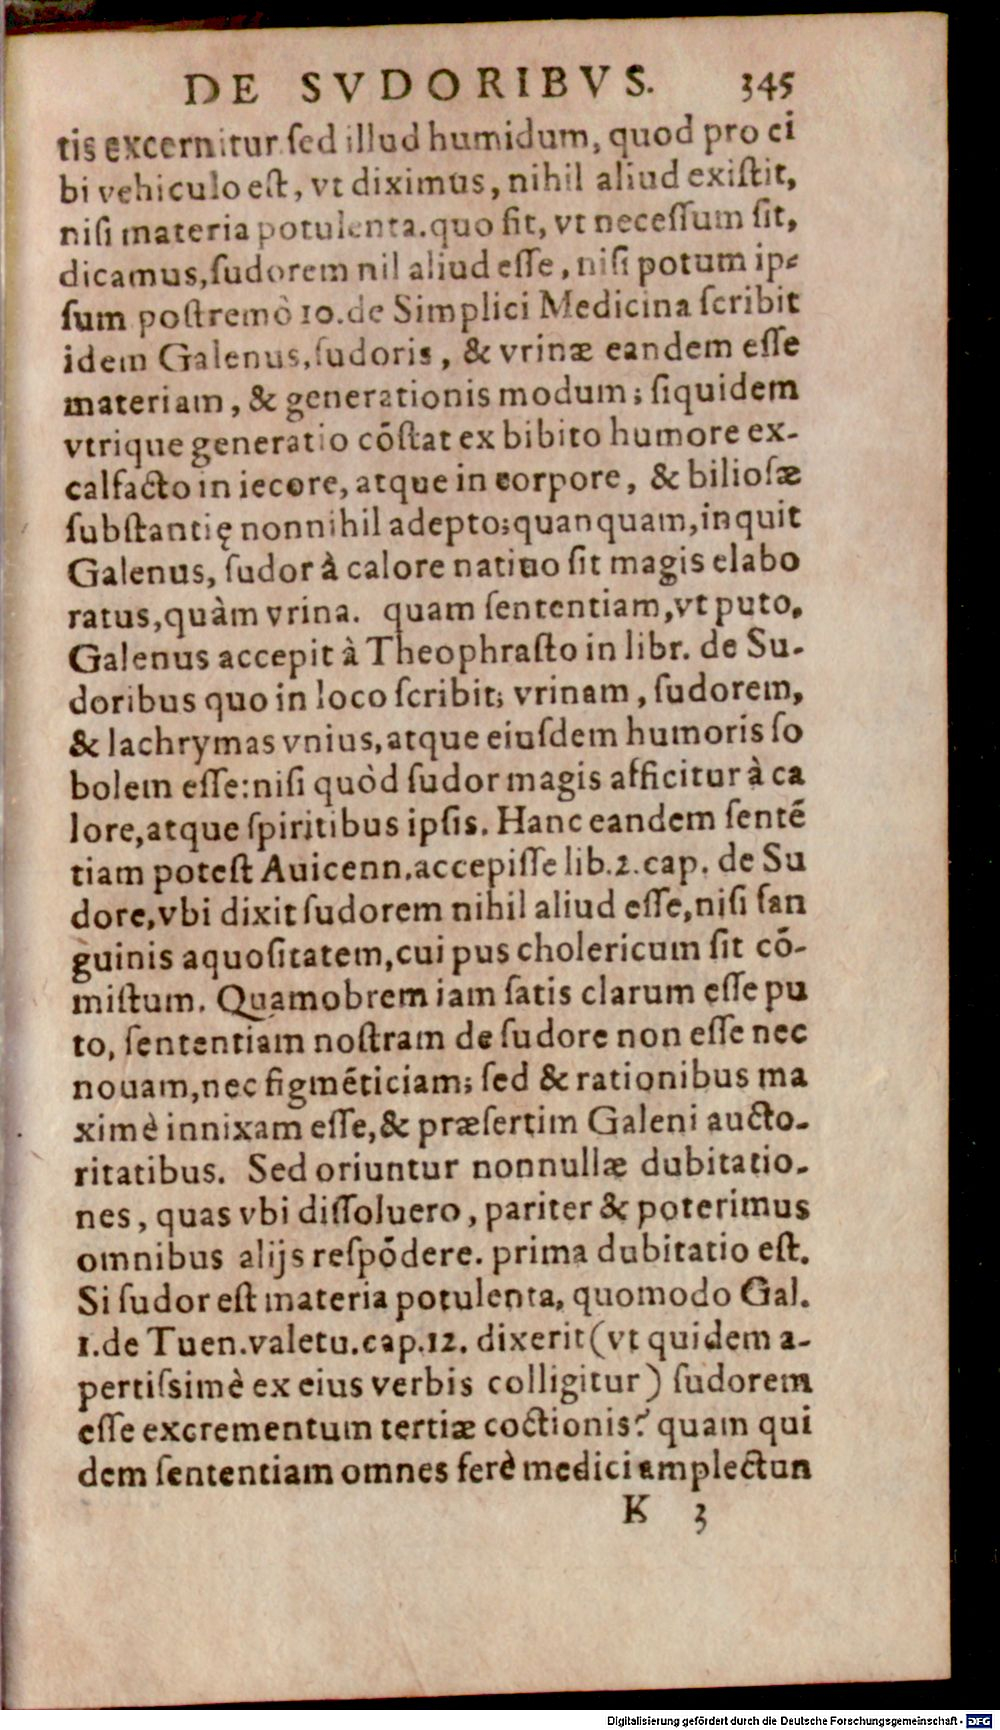 DE SVDORIBVS. 345
tis excernitur sed illud humidum, quod pro ci
bi vehiculo est, vt diximus, nihil aliud existit,
nisi materia potulenta. quo fit, vt necessum sit,
dicamus, sudorem nil aliud esse, nisi potum ip-
sum postremò 10. de Simplici Medicina scribit
idem Galenus, sudoris, & vrinæ eandem esse
materiam, & generationis modum; siquidem
vtrique generatio cõstat ex bibito humore ex-
calfacto in iecore, atque in corpore, & biliosæ
substantię nonnihil adepto; quanquam, inquit
Galenus, sudor à calore natiuo sit magis elabo
ratus, quàm vrina. quam sententiam, vt puto,
Galenus accepit à Theophrasto in libr. de Su-
doribus quo in loco scribit; vrinam, sudorem,
& lachrymas vnius, atque eiusdem humoris so
bolem esse: nisi quòd sudor magis afficitur à ca
lore, atque spiritibus ipsis. Hanc eandem sentẽ
tiam potest Auicenn. accepisse lib. 2. cap. de Su
dore, vbi dixit sudorem nihil aliud esse, nisi san
guinis aquositatem, cui pus cholericum sit cõ-
mistum. Quamobrem iam satis clarum esse pu
to, sententiam nostram de sudore non esse nec
nouam, nec figmẽticiam; sed & rationibus ma
ximè innixam esse, & præsertim Galeni aucto-
ritatibus. Sed oriuntur nonnullæ dubitatio-
nes, quas vbi dissoluero, pariter & poterimus
omnibus alijs respõdere. prima dubitatio est.
Si sudor est materia potulenta, quomodo Gal.
1. de Tuen. valetu. cap. 12. dixerit (vt quidem a-
pertissimè ex eius verbis colligitur) sudorem
esse excrementum tertiæ coctionis? quam qui
dem sententiam omnes ferè medici amplectun
K 3
Digitalisierung gefördert durch die Deutsche Forschungsgemeinschaft - DFG